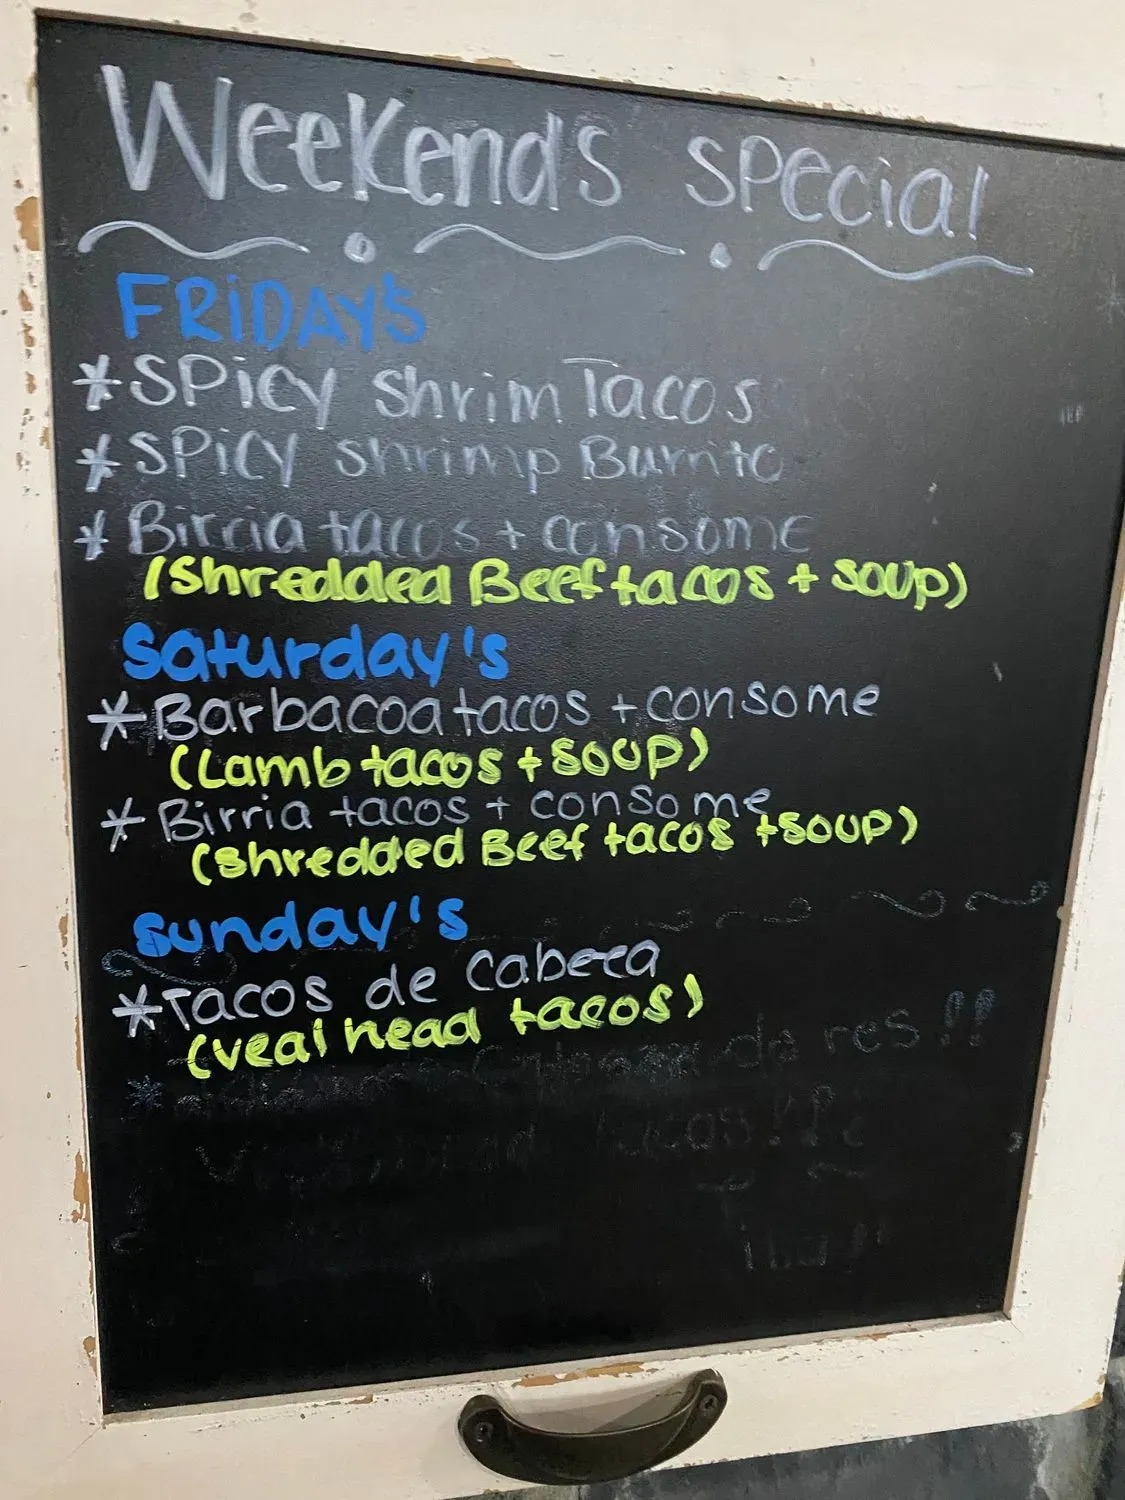 Weekend's special
FRiDAY'S
*SPicy shrim Tacos
*SPicy shrimp Burrito
*Birria tacos + consome
(Shredded Beef tacos + SOUP)
Saturday's
*Barbacoa tacos + consome
(Lamb tacos + SOUP)
*Birria tacos + consome
(Shredded Beef tacos + SOUP)
Sunday's
*Tacos de Cabeca
(veal head tacos)
de res!!
tacos!